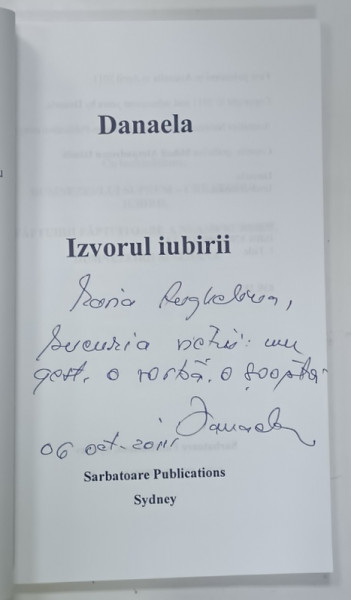 Danaela
Izvorul iubirii
bucuria vieții: un
gest, o vorbă, o șoaptă
Danaela
06 oct. 2011
Sarbatoare Publications
Sydney